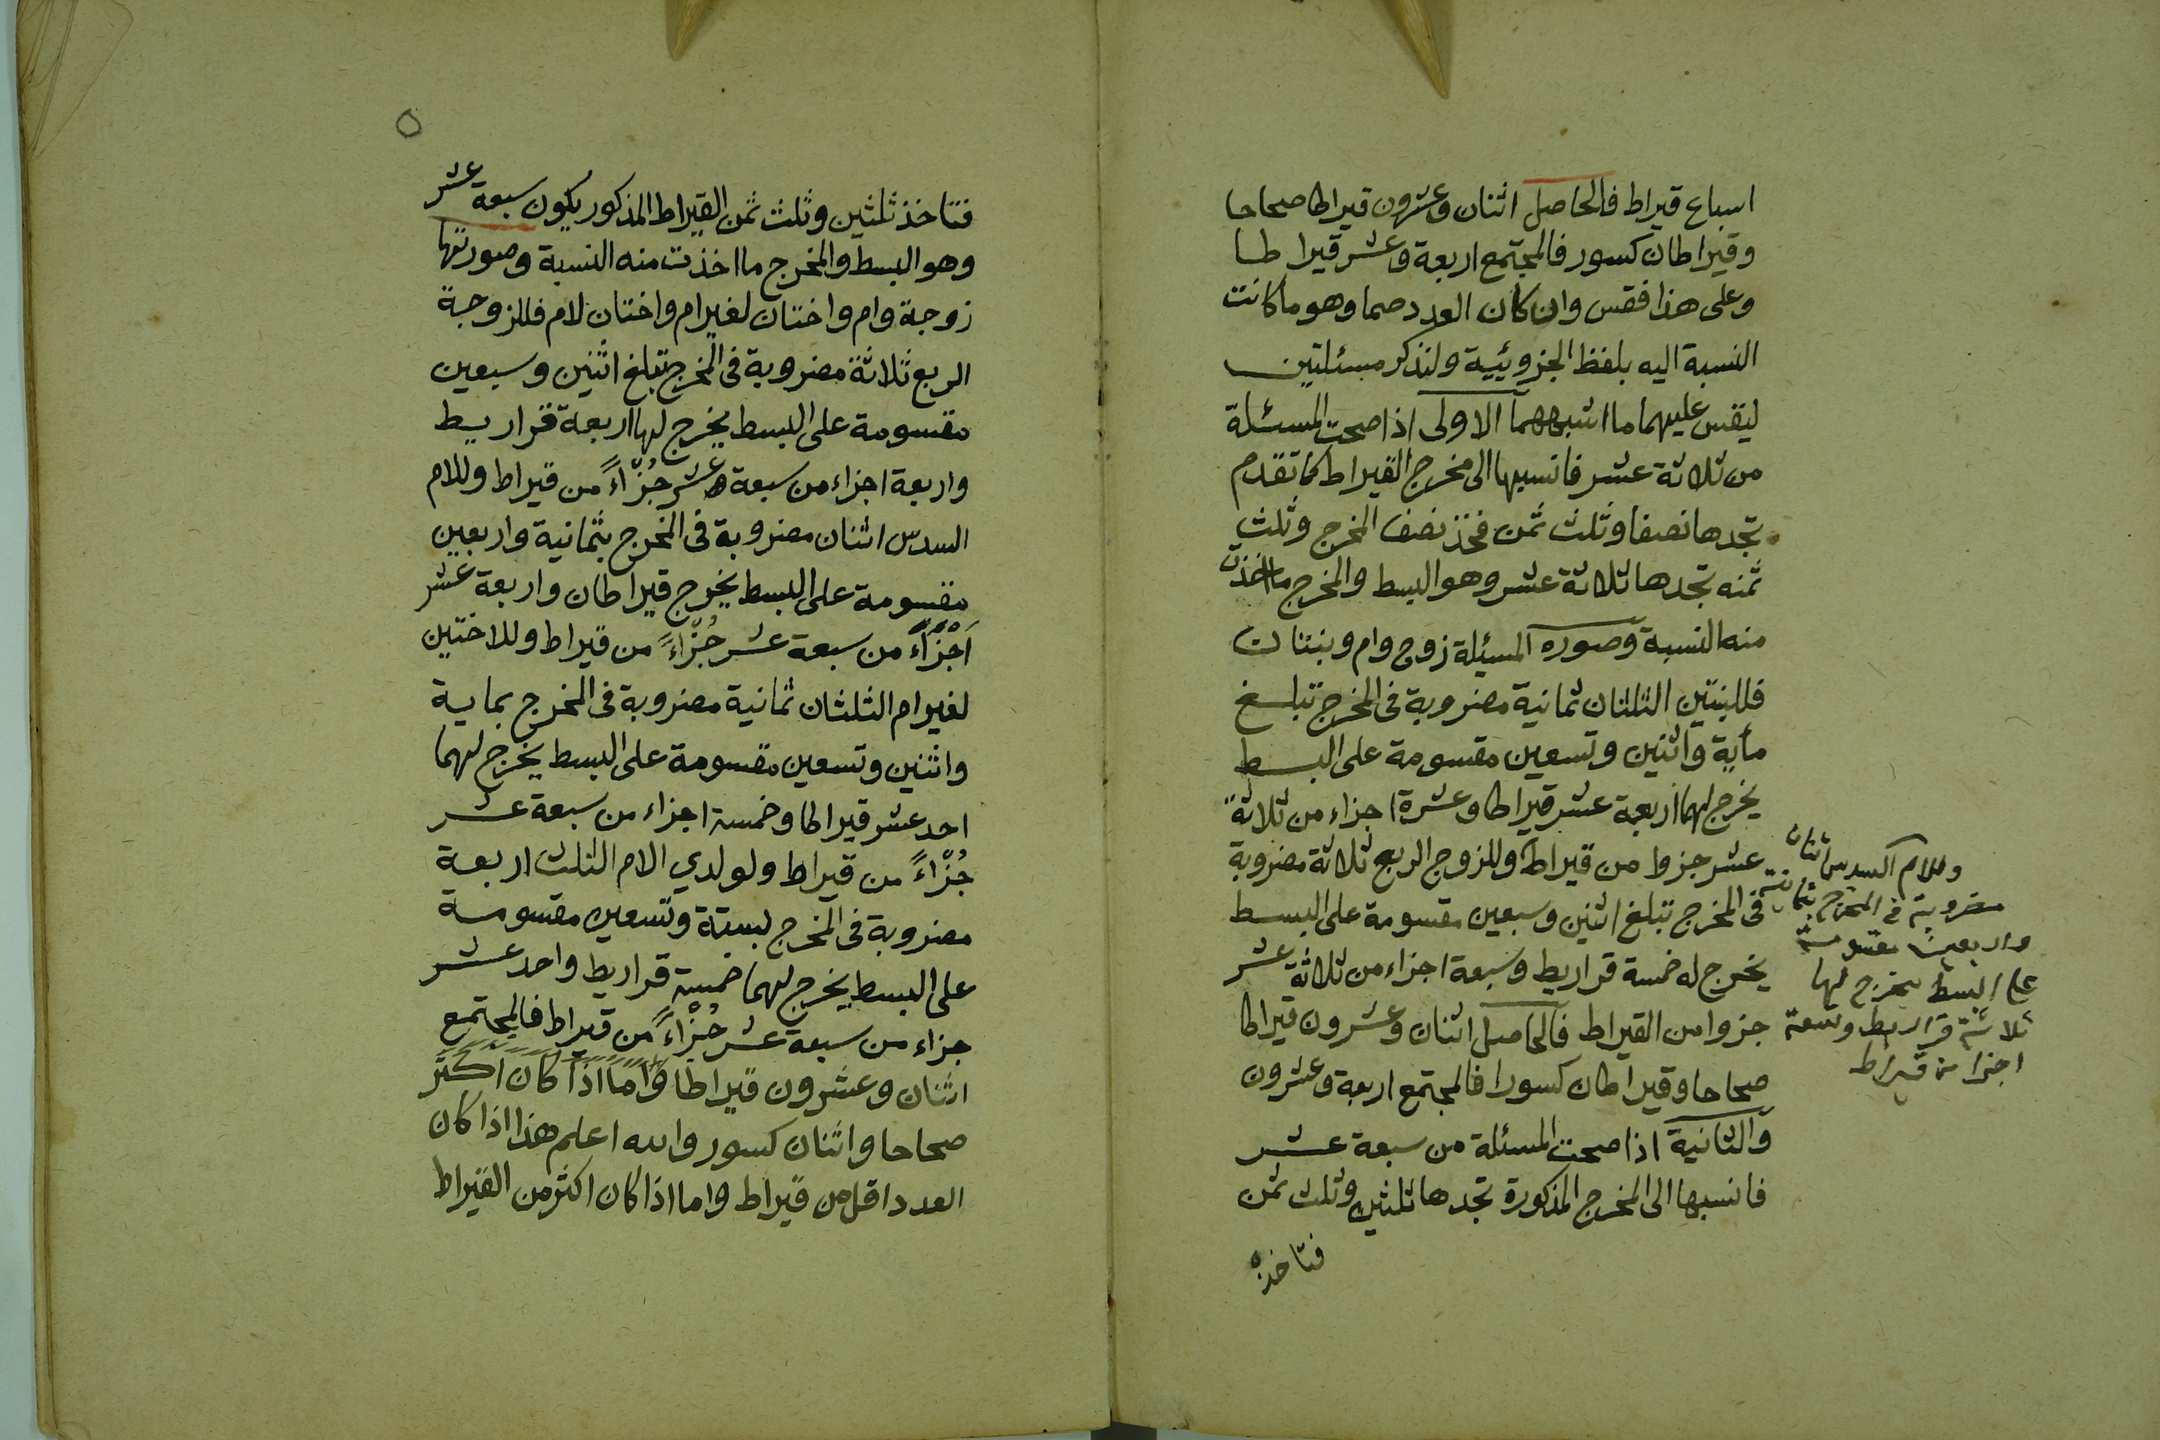 اسباع قيراط فالحاصل اثنان وعشرون قيراطا صحاحا
وقيراطان كسور فالمجتمع اربعة وعشر قيراطا
وعلى هذا فقس وان كان العدد صما وهو ما كانت
النسبة اليه بلفظ الجزويئية ولنذكر مسئلتين
ليقس عليهما ما اشبههما الاولى اذا صحت المسئلة
من ثلاثة عشر فانسبها الى مخرج القيراط كما تقدم
تجدها نصفا وثلث ثمن فخذ نصف المخرج وثلث
ثمنه تجدها ثلاثة عشر وهو البسط والمخرج ما اخذت
منه النسبة وصوره المسئلة زوج وام وبنتان
فللبنتين الثلثان ثمانية مضروبة فى المخرج تبلغ
مأية واثنين وتسعين مقسومة على البسط
يخرج لهما اربعة عشر قيراطا وعشرة اجزاء من ثلاثة
عشر جزوا من قيراط وللزوج الربع ثلاثة مضروبة
فى المخرج تبلغ اثنين وسبعين مقسومة على البسط
يخرج له خمسة قراريط وسبعة اجزاء من ثلاثة عشر
جزوا من القيراط فالحاصل اثنان وعشرون قيراطا
صحاحا وقيراطان كسورا فالمجتمع اربعة وعشرون
والثانية اذا صحت المسئلة من سبعة عشر
فانسبها الى المخرج المذكورة تجدها ثلثين وثلث ثمن
فتاخذ
وللام السدس اثنان
مضروبة فى المخرج بثمانية
واربعين مقسومة
على البسط يخرج لها
ثلاثة قراريط وتسعة
اجزا من قيراط
٥
فتاخذ ثلثين وثلث ثمن القيراط المذكور يكون سبعة عشر
وهو البسط والمخرج ما اخذت منه النسبة وصورتها
زوجة وام واختان لغير ام واختان لام فللزوجة
الربع ثلاثة مضروبة فى المخرج تبلغ اثنين وسبعين
مقسومة على البسط يخرج لها اربعة قراريط
واربعة اجزاء من سبعة عشر جُزْاءً من قيراط وللام
السدس اثنان مضروبة فى المخرج بثمانية واربعين
مقسومة على البسط يخرج قيراطان واربعة عشر
اَجْزَاءً من سبعة عشر جُزْاءً من قيراط وللاختين
لغير ام الثلثان ثمانية مضروبة فى المخرج بماية
واثنين وتسعين مقسومة على البسط يخرج لهما
احد عشر قيراطا وخمسة اجزاء من سبعة عشر
جُزْاءً من قيراط ولولدي الام الثلث اربعة
مضروبة فى المخرج لبستة وتسعين مقسومة
على البسط يخرج لهما خمسة قراريط واحد عشر
جزاء من سبعة عشر جُزْاءً من قيراط فالمجتمع
اثنان وعشرون قيراطا واما اذا كان اكثر
صحاحا واثنان كسور والله اعلم هذا اذا كان
العدد اقل من قيراط واما اذا كان اكثر من القيراط